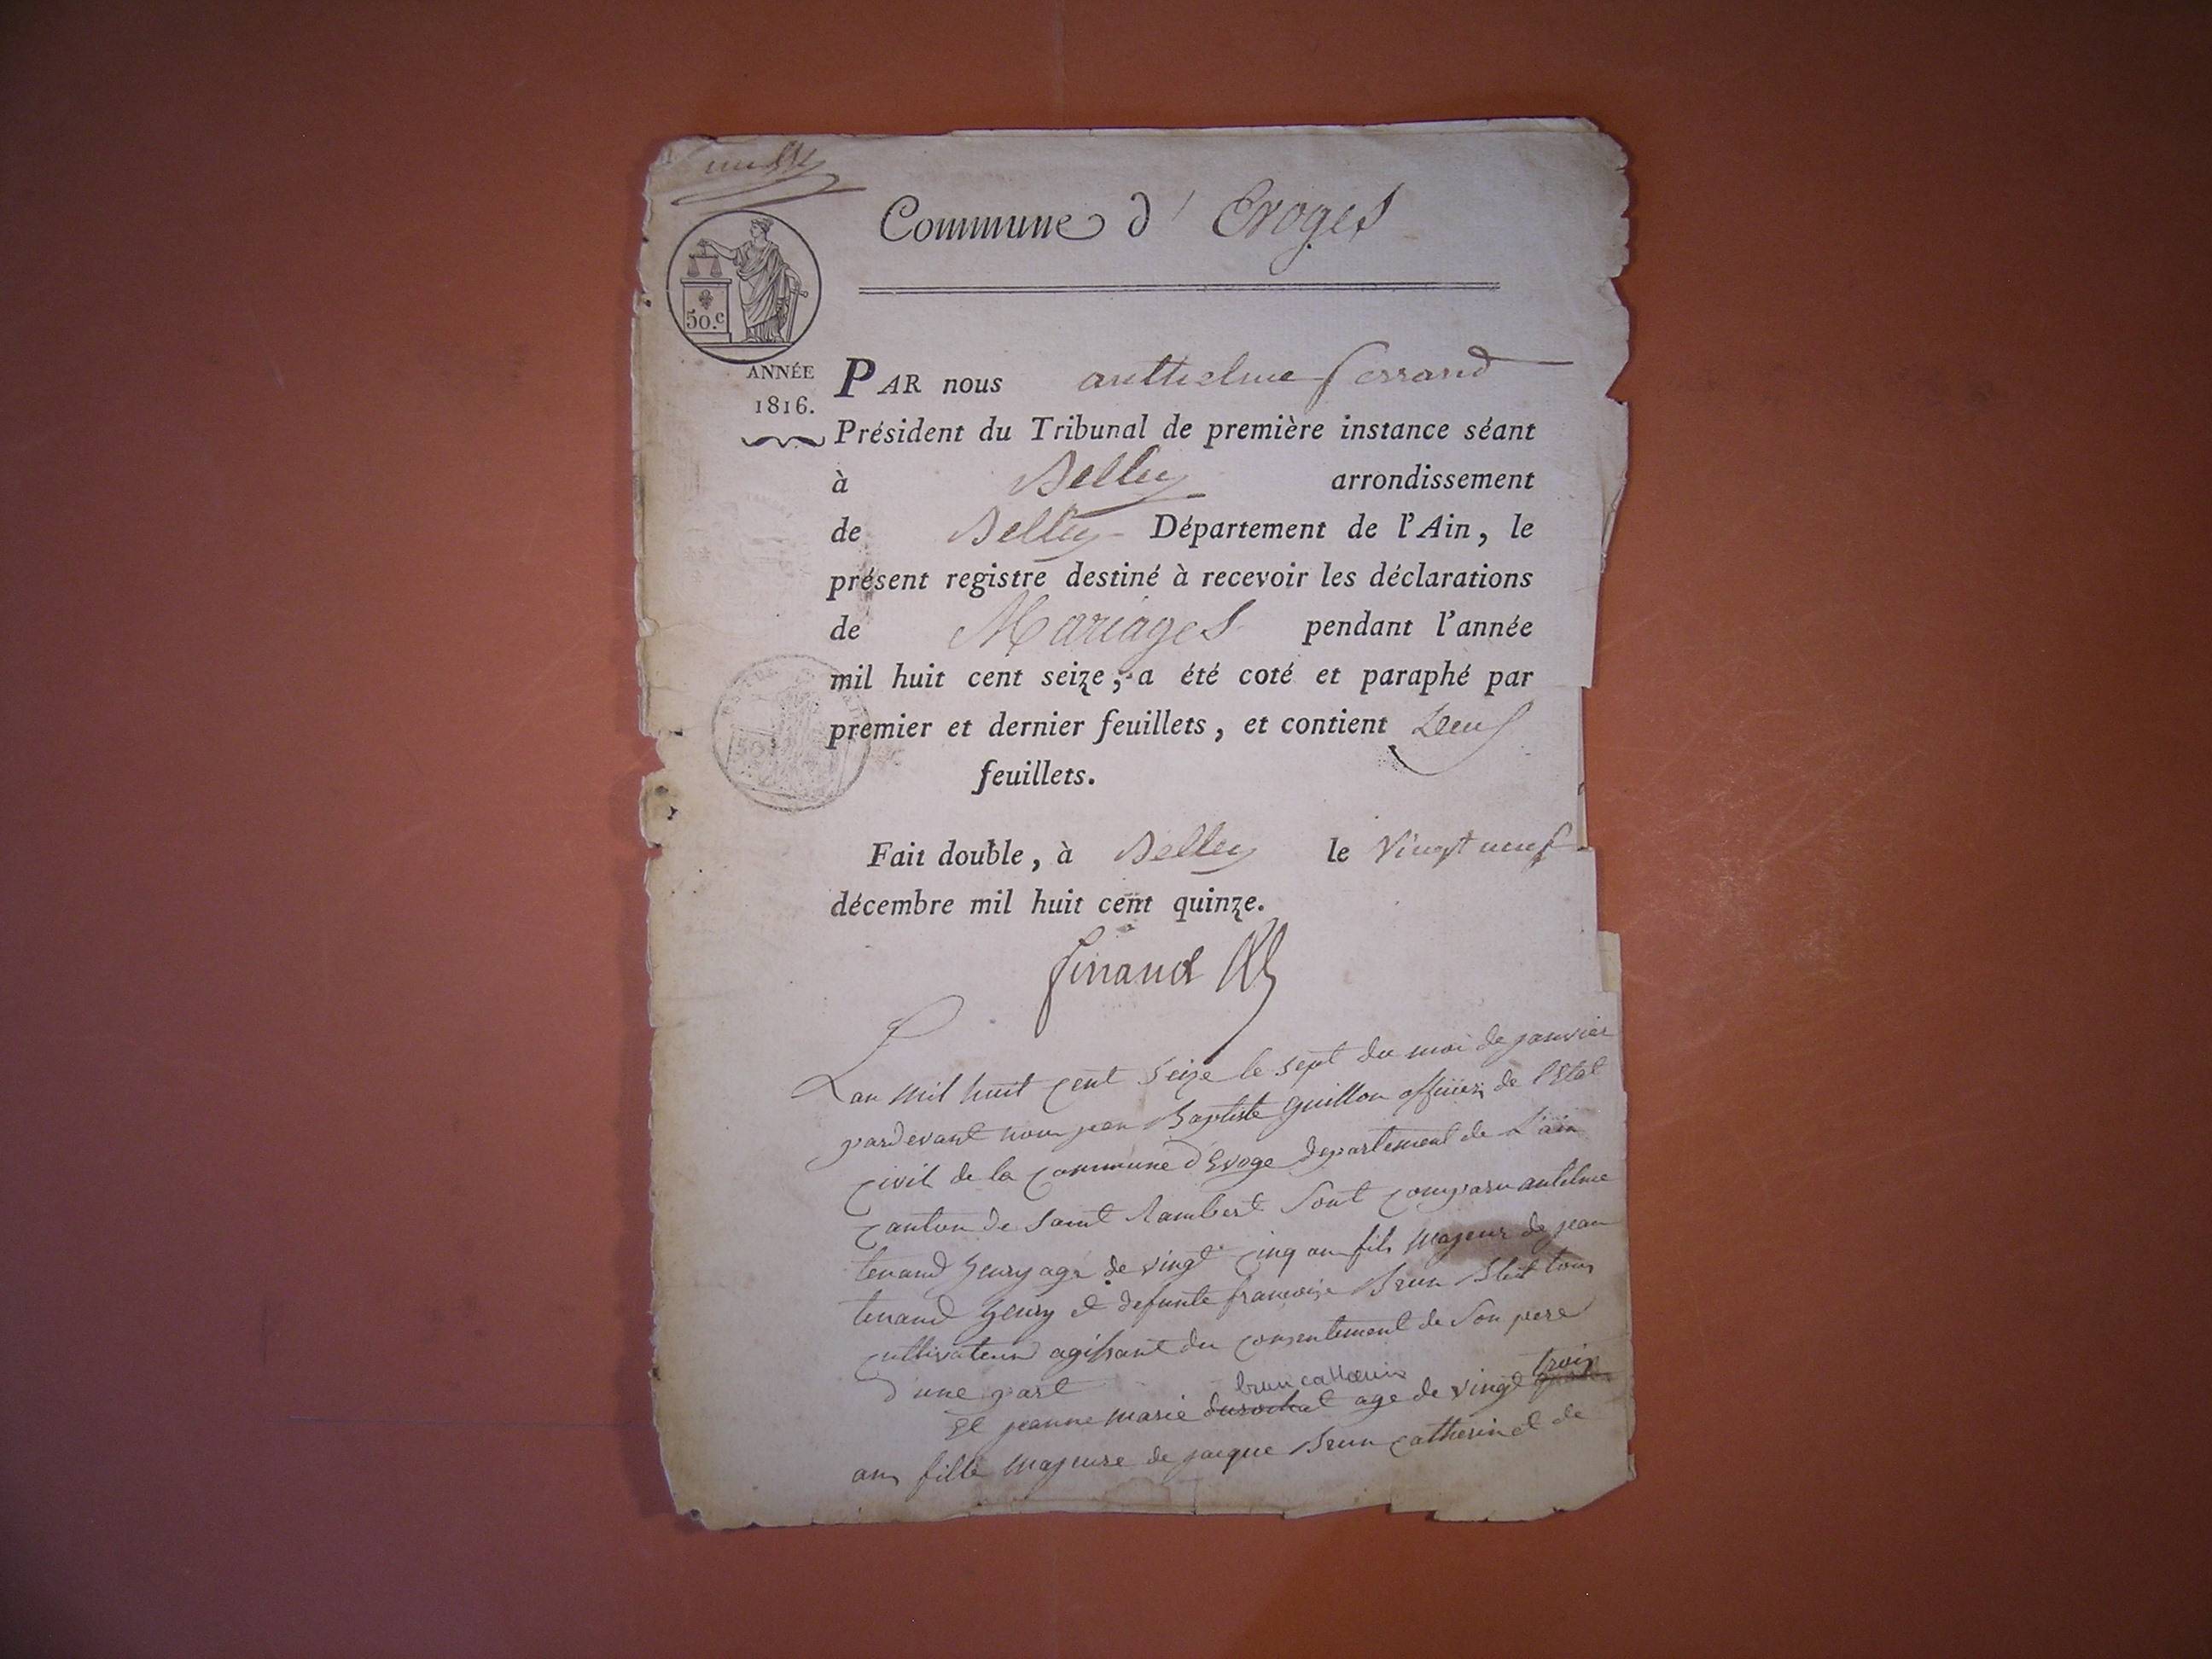 Commune d' Evoges
50.c
ANNÉE
1816.
PAR nous anthelme ferrand
Président du Tribunal de première instance séant
à Belley arrondissement
de Belley Département de l'Ain, le
présent registre destiné à recevoir les déclarations
de Mariages pendant l'année
mil huit cent seize, a été coté et paraphé par
premier et dernier feuillets, et contient Deux
feuillets.
Fait double, à Belley le Vingt neuf
décembre mil huit cent quinze.
ferrand
L'an mil huit cent seize le sept du moi de janvier
pardevant nous jean Baptiste guillon officier de l'Etat
civil de la commune d'Evoge departement de L'ain
canton de saint Rambert sont comparu antelme
tenand henry age de vingt cinq an fils majeur de jean
tenand henry et defunte francoise Brun tous
cultivateur agissant du consentement de son pere
d'une part
brun catherin
trois
Et jeanne marie durochat age de vingt
ans fille majeure de jacque Brun catherin et de